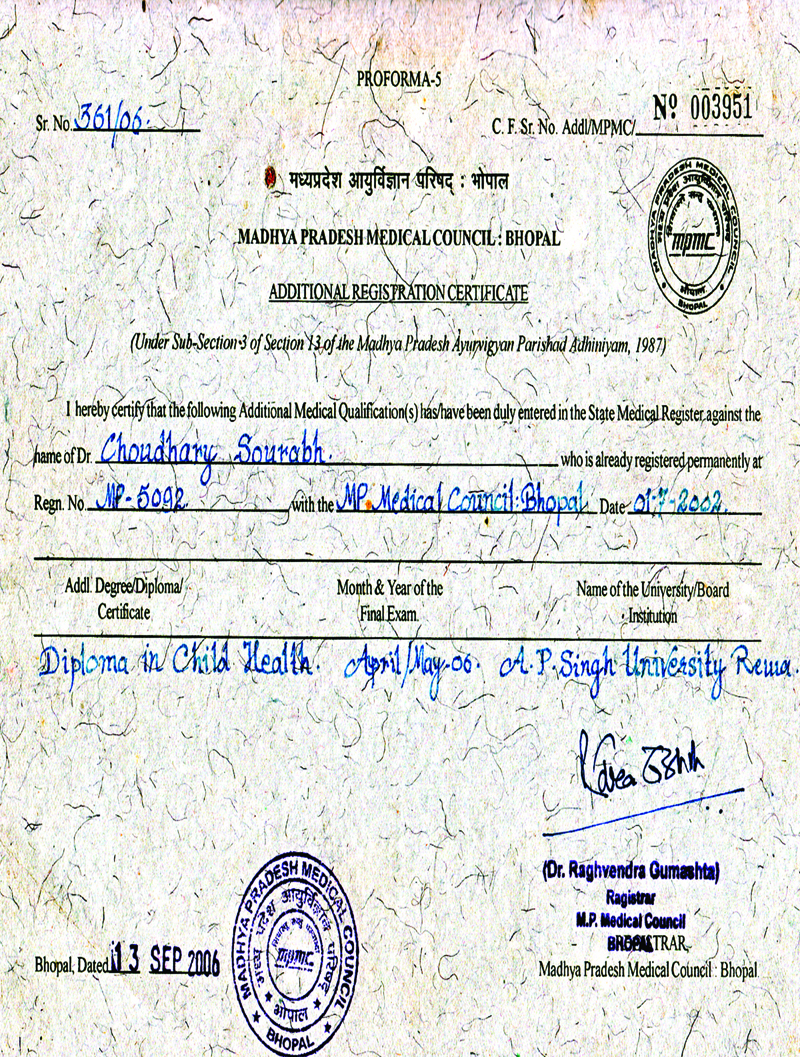 PROFORMA-5
Sr. No. 361/06.
C. F. Sr. No. Addl/MPMC/ Nº 003951
मध्यप्रदेश आयुर्विज्ञान परिषद् : भोपाल
MADHYA PRADESH MEDICAL COUNCIL : BHOPAL
MADHYA PRADESH MEDICAL COUNCIL
mpmc
भोपाल
BHOPAL
ADDITIONAL REGISTRATION CERTIFICATE
(Under Sub-Section-3 of Section 13 of the Madhya Pradesh Ayurvigyan Parishad Adhiniyam, 1987)
I hereby certify that the following Additional Medical Qualification(s) has/have been duly entered in the State Medical Register against the
name of Dr. Choudhary Sourabh. who is already registered permanently at
Regn. No. MP-5092. with the MP. Medical Council. Bhopal Date 01-7-2002.
Addl. Degree/Diploma/ Month & Year of the Name of the University/Board
Certificate Final Exam. Institution
Diploma in Child Health. April/May-06. A.P. Singh University Rewa.
(Dr. Raghvendra Gumashta)
Ragistrar
M.P. Medical Council
Bhopal, Dated 13 SEP 2006
Madhya Pradesh Medical Council : Bhopal
MADHYA PRADESH MEDICAL COUNCIL
मध्य प्रदेश आयुर्विज्ञान परिषद
mpmc
भोपाल
BHOPAL